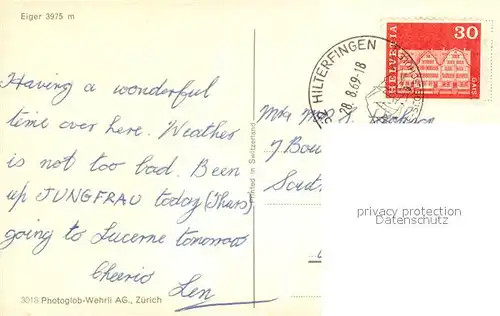 Eiger 3975 m
HELVETIA
30
GAIS
HILTERFINGEN
28.8.69-18
Having a wonderful
time over here. Weather
is not too bad. Been
up JUNGFRAU today (Thurs)
going to Lucerne tomorrow
Cheerio Len
Printed in Switzerland
3018 Photoglob-Wehrli AG., Zürich
7 Bou
Sout
privacy protection
Datenschutz